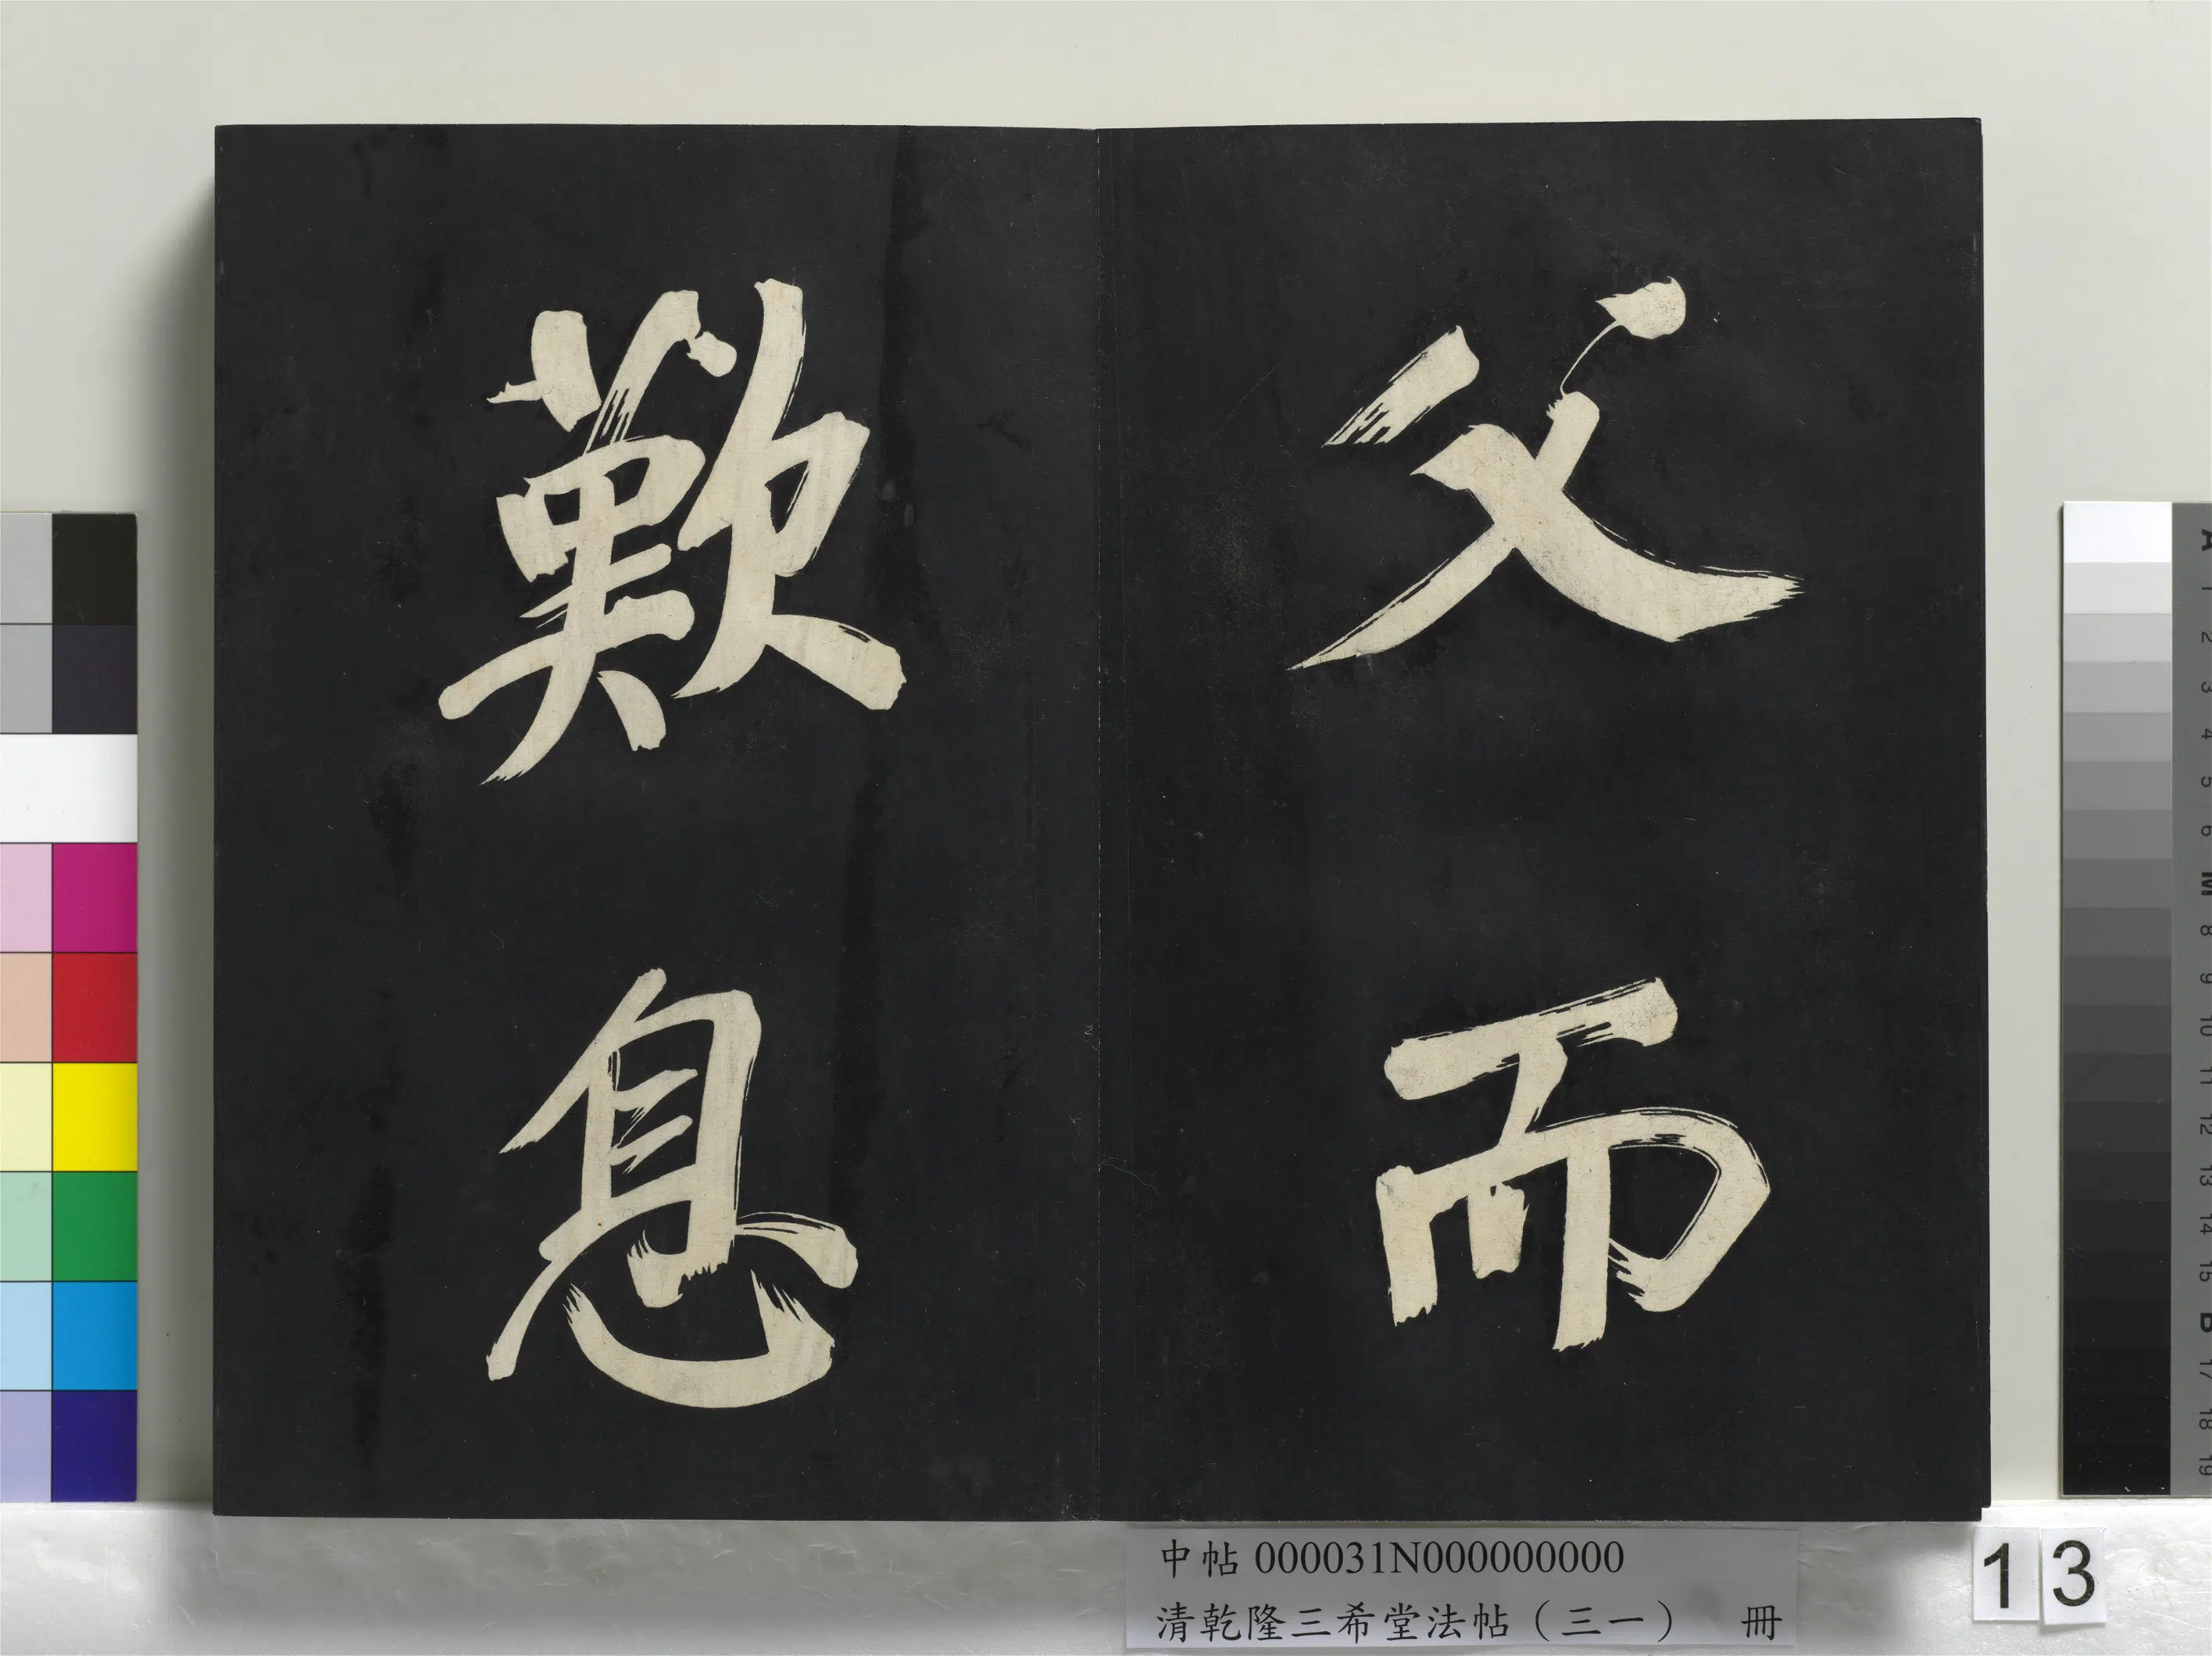 父而
歎息
中帖 000031N000000000
清乾隆三希堂法帖（三一） 冊
13
A 1 2 3 4 5 6 M 8 9 10 11 12 13 14 15 B 17 18 19